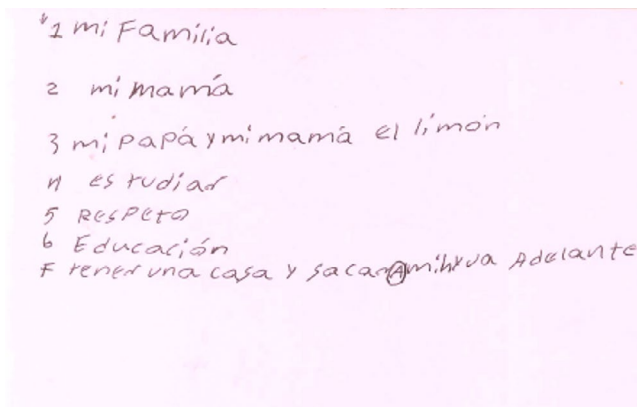 1 mi Familia
2 mi mamá
3 mi papá y mi mamá el limón
4 estudiar
5 Respeto
6 Educación
7 tener una casa y sacar A mi hija Adelante